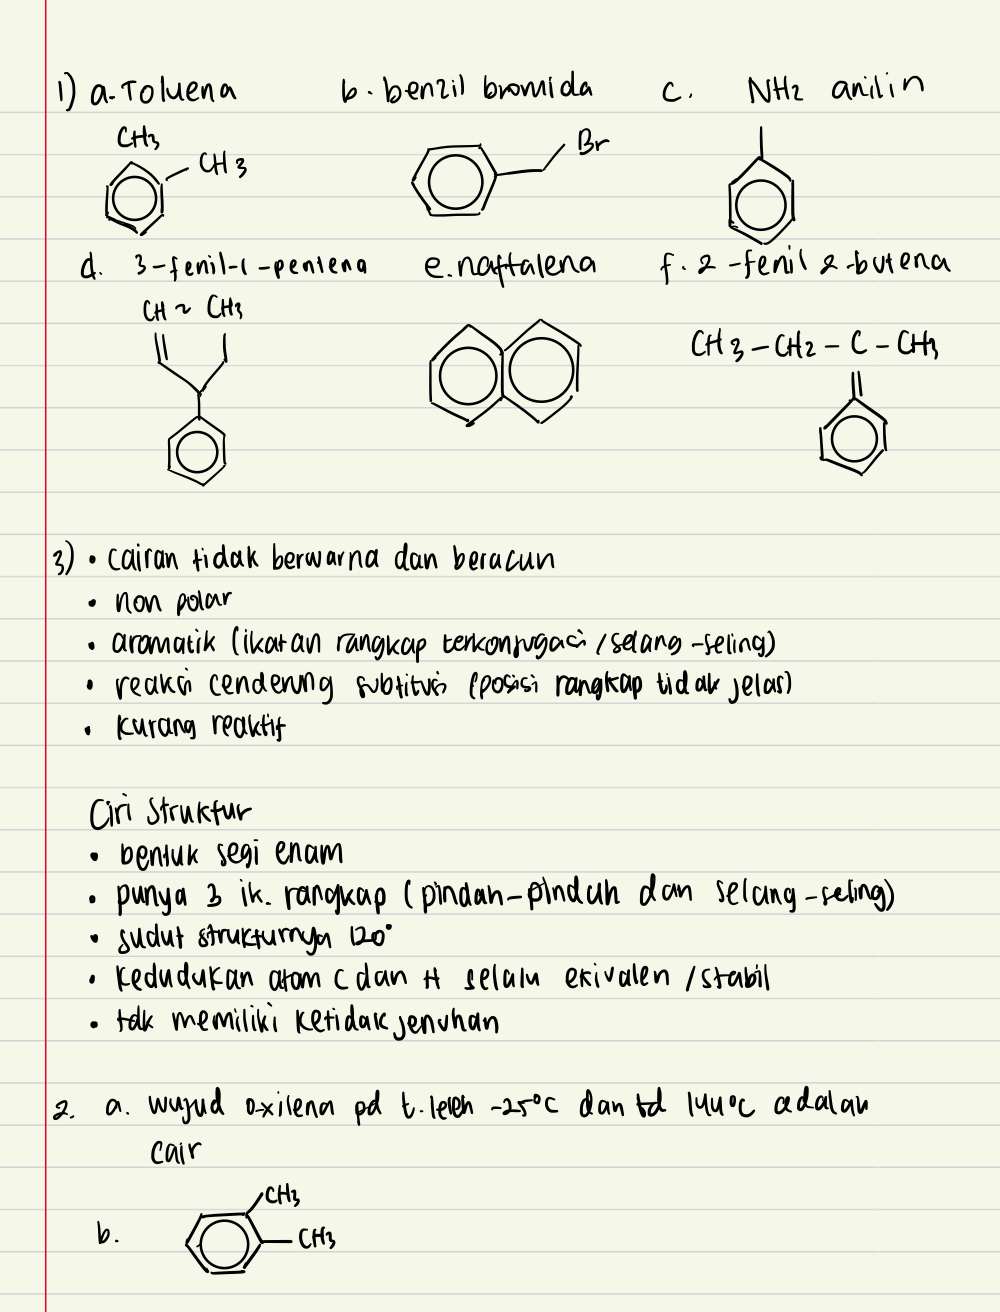 1) a. Toluena b. benzil bromida c. NH2 anilin
CH3
CH3
Br
d. 3-fenil-1-pentena e. naftalena f. 2-fenil 2-butena
CH2 CH3
CH3 - CH2 - C - CH3
3) • cairan tidak berwarna dan beracun
• non polar
• aromatik (ikatan rangkap terkonjugasi / selang-seling)
• reaksi cenderung subtitusi (posisi rangkap tidak jelas)
• kurang reaktif
Ciri Struktur
• bentuk segi enam
• punya 3 ik. rangkap (pindah-pindah dan selang-seling)
• sudut strukturnya 120°
• kedudukan atom C dan H selalu ekivalen / stabil
• tdk memiliki ketidakjenuhan
2. a. wujud o-xilena pd t. leleh -25°C dan td 144°C adalah
cair
CH3
b. CH3